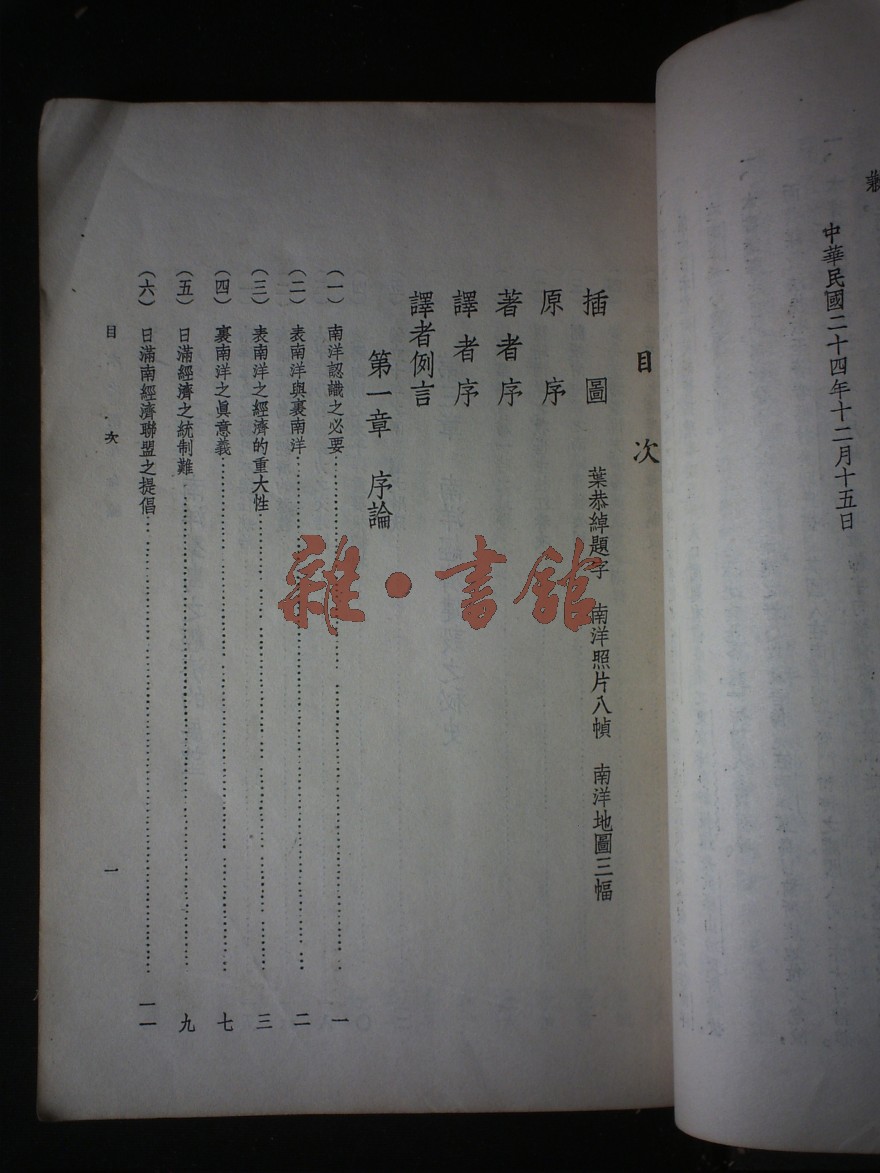 中華民國二十四年十二月十五日
目次
插圖 葉恭綽題字 南洋照片八幀 南洋地圖三幅
原序
著者序
譯者序
譯者例言
第一章 序論
(一) 南洋認識之必要……一
(二) 表南洋與裏南洋……二
(三) 表南洋之經濟的重大性……三
(四) 裏南洋之眞意義……七
(五) 日滿經濟之統制難……九
(六) 日滿南經濟聯盟之提倡……一一
目次
一
雜·書館